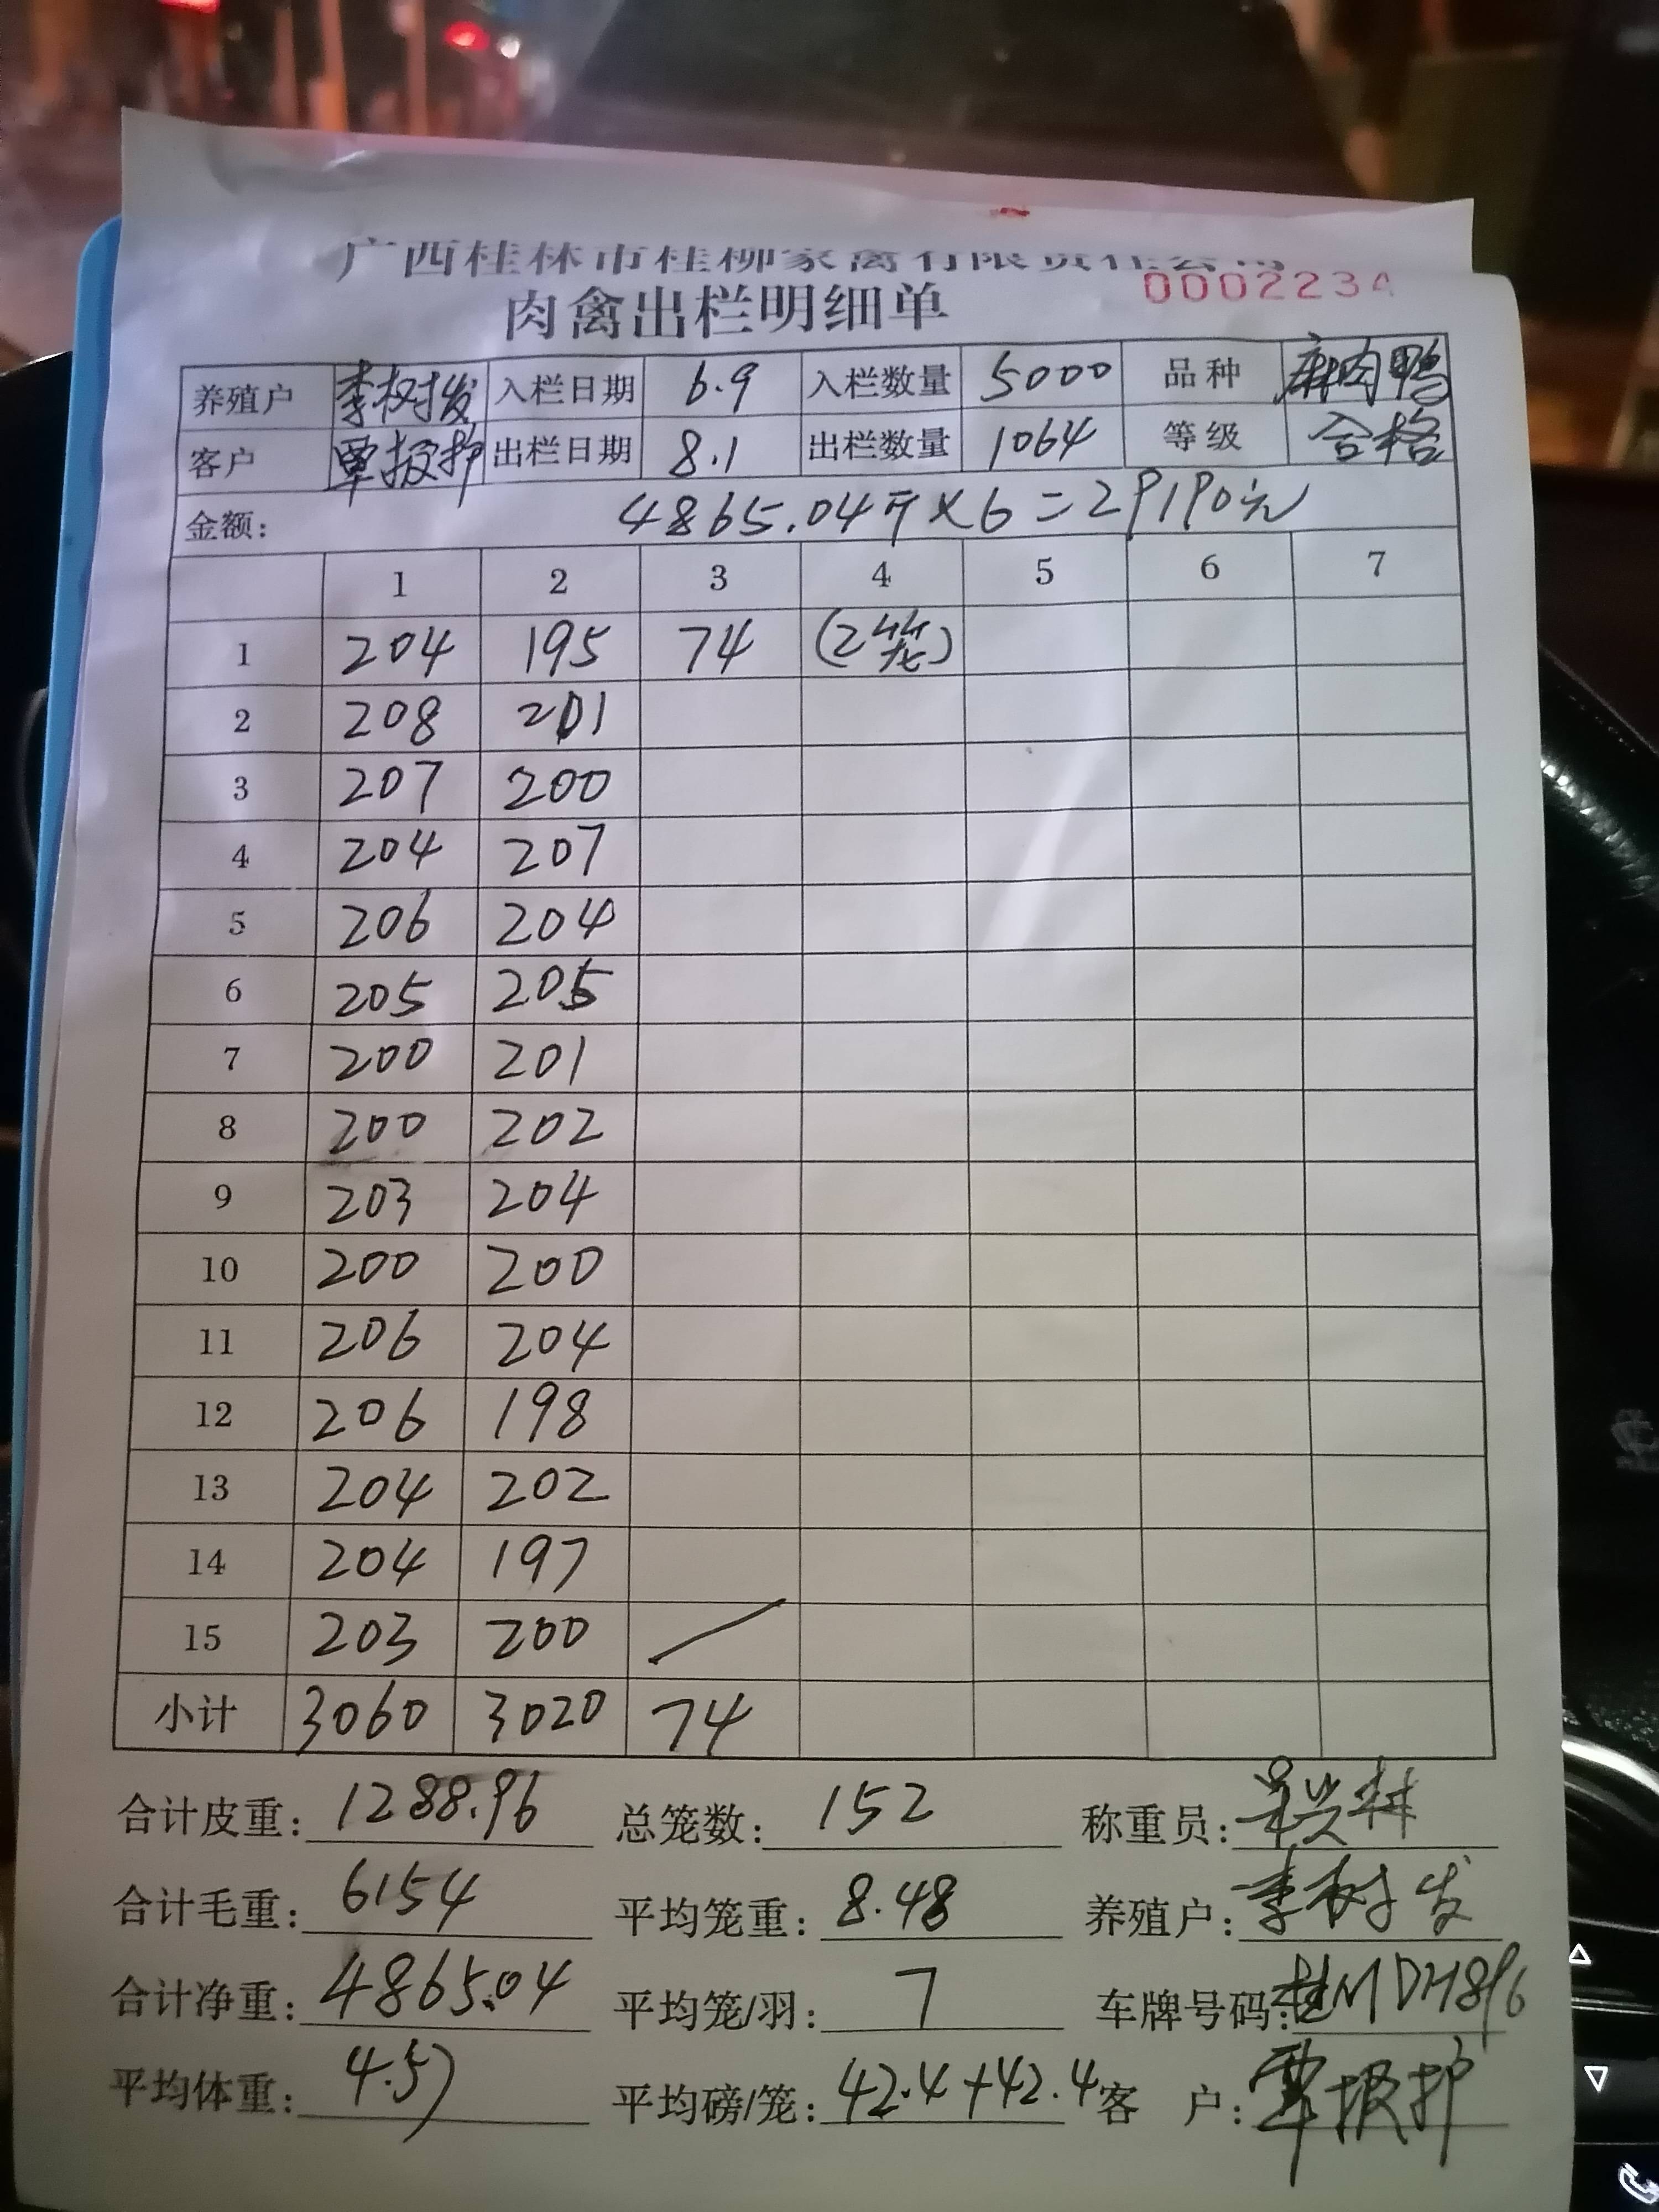 广西桂林市桂柳家禽有限责任公司
肉禽出栏明细单 0002234
养殖户 李树发 入栏日期 6.9 入栏数量 5000 品种 麻肉鸭
客户 出栏日期 8.1 出栏数量 1064 等级 合格
金额: 4865.04斤×6=29190元
1 2 3 4 5 6 7
1 204 195 74 (2笼)
2 208 201
3 207 200
4 204 207
5 206 204
6 205 205
7 200 201
8 200 202
9 203 204
10 200 200
11 206 204
12 206 198
13 204 202
14 204 197
15 203 200
小计 3060 3020 74
合计皮重: 1288.96 总笼数: 152 称重员:
合计毛重: 6154 平均笼重: 8.48 养殖户: 李树发
合计净重: 4865.04 平均笼/羽: 7 车牌号码: 桂MDH896
平均体重: 4.57 平均磅/笼: 42.4+42.4 客 户: